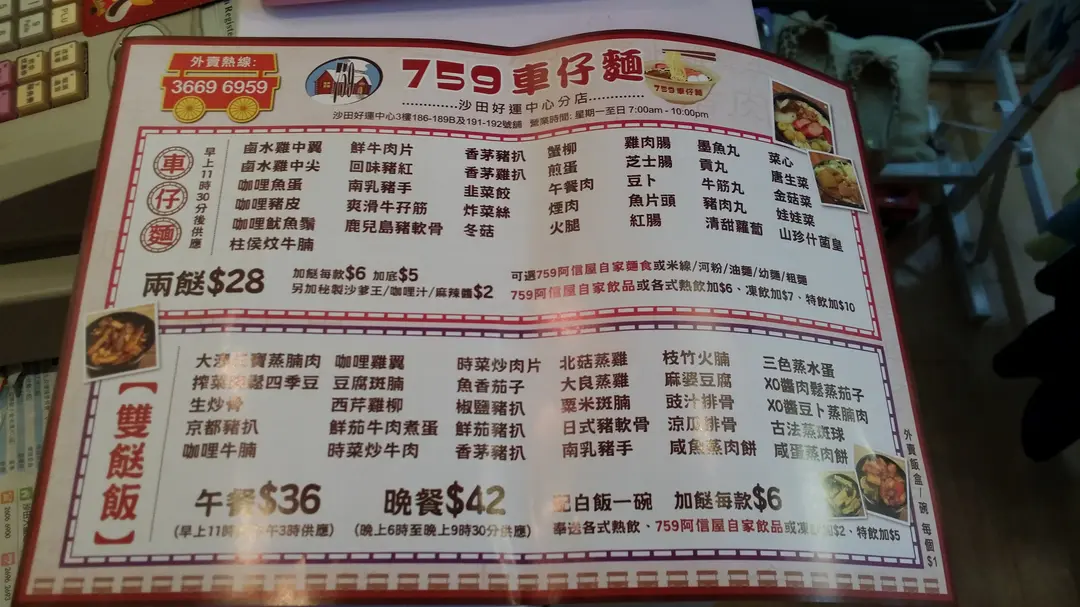 外賣熱線:
3669 6959
759車仔麵
759車仔麵
沙田好運中心分店
沙田好運中心3樓186-189B及191-192號舖 營業時間: 星期一至日 7:00am - 10:00pm
車仔麵
早上11時30分後供應
鹵水雞中翼 鮮牛肉片 香茅豬扒 蟹柳 雞肉腸 墨魚丸 菜心
鹵水雞中尖 回味豬紅 香茅雞扒 煎蛋 芝士腸 貢丸 唐生菜
咖哩魚蛋 南乳豬手 韭菜餃 午餐肉 豆卜 牛筋丸 金菇菜
咖哩豬皮 爽滑牛孖筋 炸菜絲 煙肉 魚片頭 豬肉丸 娃娃菜
咖哩魷魚鬚 鹿兒島豬軟骨 冬菇 火腿 紅腸 清甜蘿蔔 山珍什菌皇
柱侯炆牛腩
兩餸$28
加餸每款$6 加底$5
另加秘製沙爹王/咖哩汁/麻辣醬$2
可選759阿信屋自家麵食或米線/河粉/油麵/幼麵/粗麵
759阿信屋自家飲品或各式熱飲加$6、凍飲加$7、特飲加$10
【雙餸飯】
寶蒸腩肉 咖哩雞翼 時菜炒肉片 北菇蒸雞 枝竹火腩 三色蒸水蛋
榨菜 四季豆 豆腐斑腩 魚香茄子 大良蒸雞 麻婆豆腐 XO醬肉鬆蒸茄子
生炒骨 西芹雞柳 椒鹽豬扒 粟米斑腩 豉汁排骨 XO醬豆卜蒸腩肉
京都豬扒 鮮茄牛肉煮蛋 鮮茄豬扒 日式豬軟骨 涼瓜排骨 古法蒸斑球
咖哩牛腩 時菜炒牛肉 香茅豬扒 南乳豬手 咸魚蒸肉餅 咸蛋蒸肉餅
午餐$36
(早上11時 午3時供應)
晚餐$42
(晚上6時至晚上9時30分供應)
配白飯一碗 加餸每款$6
奉送各式熱飲、759阿信屋自家飲品或凍飲加$2、特飲加$5
外賣飯盒/碗 每個$1